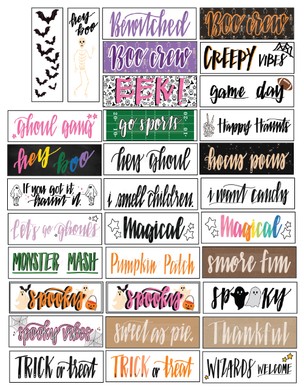 hey
boo
Bewitched
Boo crew
Boo crew
CREEPY VIBES
EEK!
game day
ghoul gang
go sports
Happy Haunts
hey boo
hey ghoul
hocus pocus
If you got it
haunt it
i smell children
i want candy
Let's go Ghouls
Magical
Magical
MONSTER MASH
Pumpkin Patch
smore fun
spooky
spooky
spooky
spooky vibes
sweet as pie
Thankful
TRICK or treat
TRICK or treat
WIZARDS WELCOME